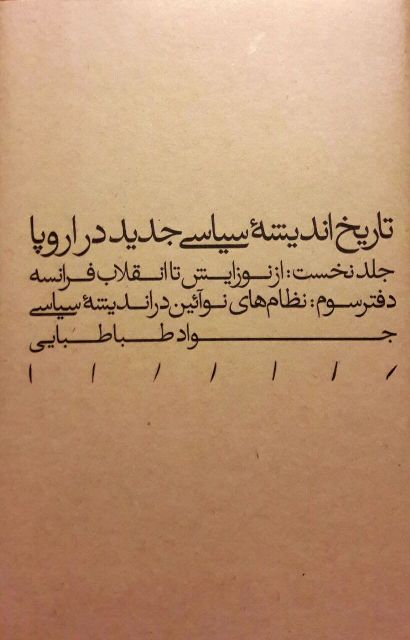 تاریخ اندیشهٔ سیاسی جدید در اروپا
جلد نخست: از نوزایش تا انقلاب فرانسه
دفتر سوم: نظام‌های نوآئین در اندیشهٔ سیاسی
جواد طباطبایی